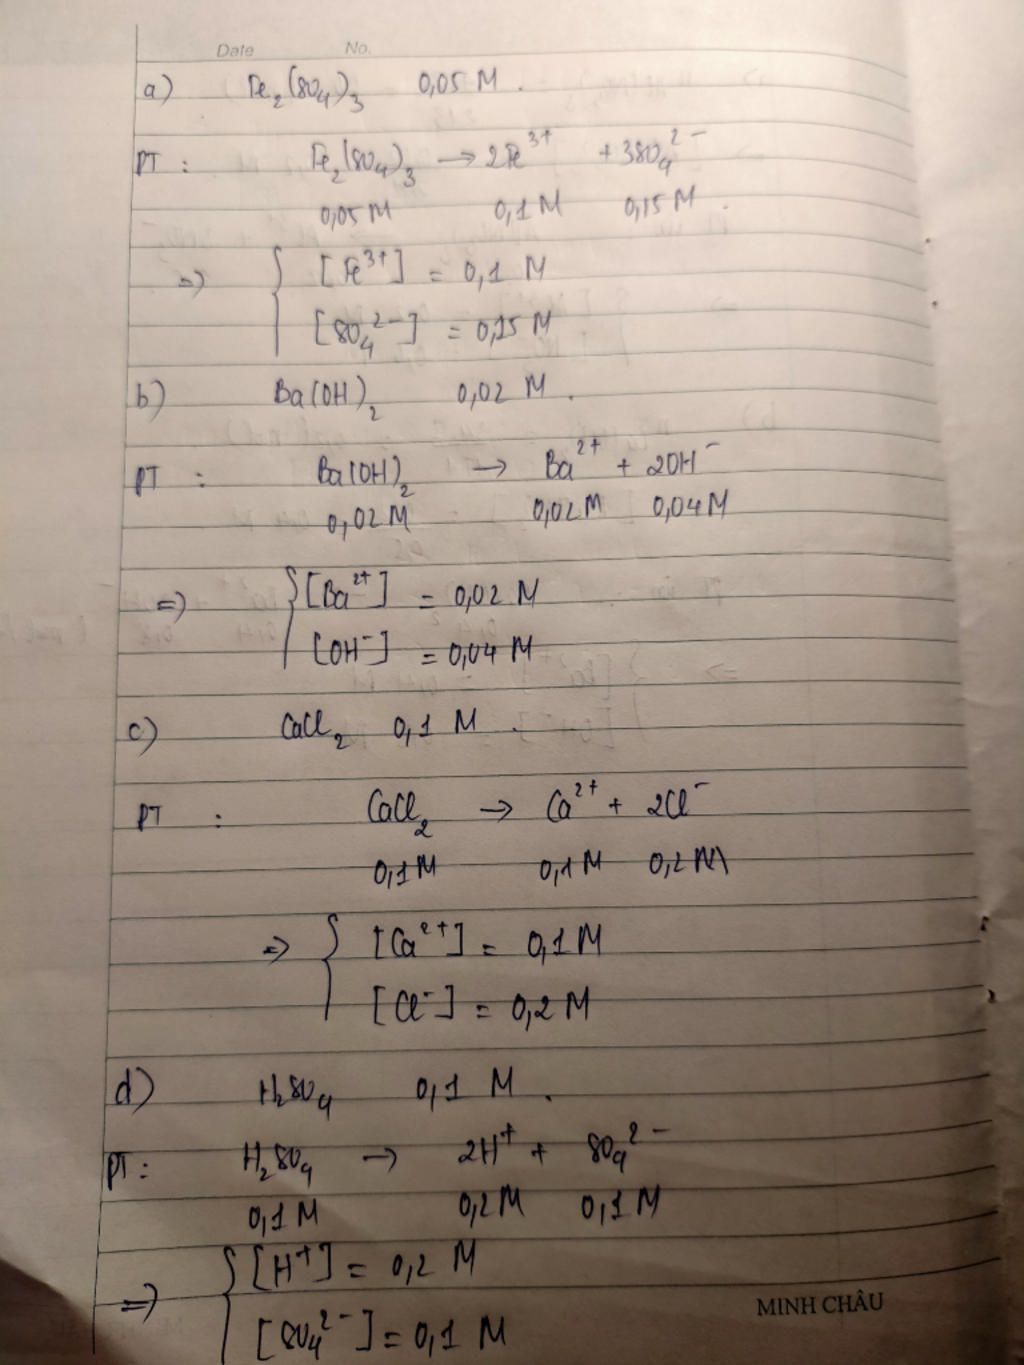 Date No.
a) Fe₂(SO₄)₃ 0,05 M .
PT : Fe₂(SO₄)₃ → 2Fe³⁺ + 3SO₄²⁻
0,05 M 0,1 M 0,15 M .
=> { [Fe³⁺] = 0,1 M
[SO₄²⁻] = 0,15 M
b) Ba(OH)₂ 0,02 M .
PT : Ba(OH)₂ → Ba²⁺ + 2OH⁻
0,02 M 0,02 M 0,04 M
=> { [Ba²⁺] = 0,02 M
[OH⁻] = 0,04 M
c) CaCl₂ 0,1 M .
PT : CaCl₂ → Ca²⁺ + 2Cl⁻
0,1 M 0,1 M 0,2 M
=> { [Ca²⁺] = 0,1 M
[Cl⁻] = 0,2 M
d) H₂SO₄ 0,1 M .
PT : H₂SO₄ → 2H⁺ + SO₄²⁻
0,1 M 0,2 M 0,1 M
=> { [H⁺] = 0,2 M
[SO₄²⁻] = 0,1 M
MINH CHÂU